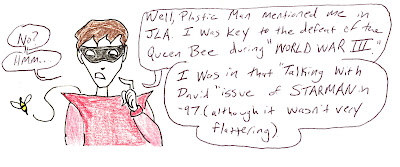 No?
Hmm...
Well, Plastic Man mentioned me in
JLA. I was key to the defeat of the
Queen Bee during "WORLD WAR III."
I was in that "Talking With
David" issue of STARMAN in
'97 (although it wasn't very
flattering)